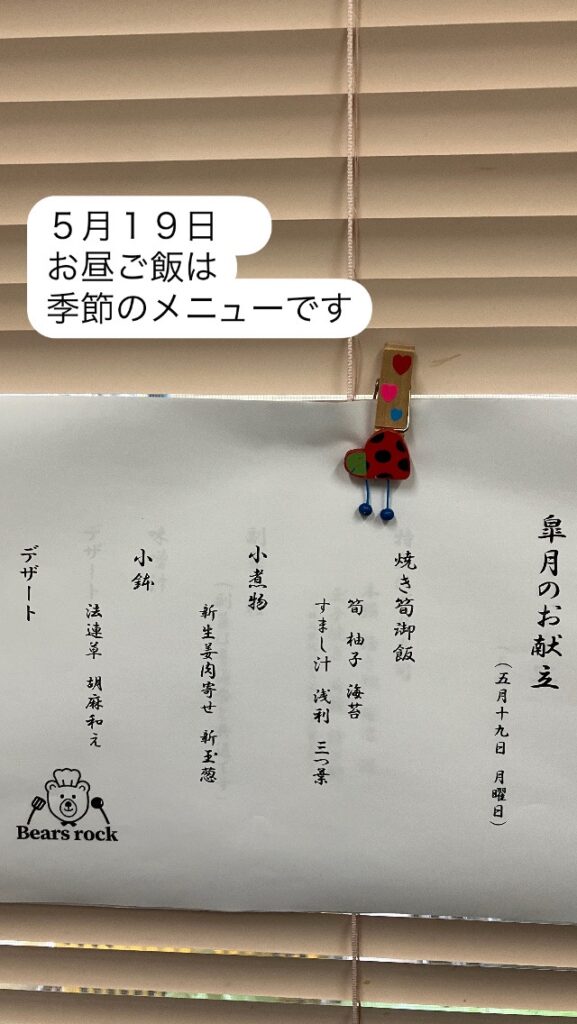 5月19日
お昼ご飯は
季節のメニューです
皐月のお献立
(五月十九日 月曜日)
焼き筍御飯
筍 柚子 海苔
すまし汁 浅利 三つ葉
小煮物
新生姜肉寄せ 新玉葱
小鉢
法連草 胡麻和え
デザート
Bears rock